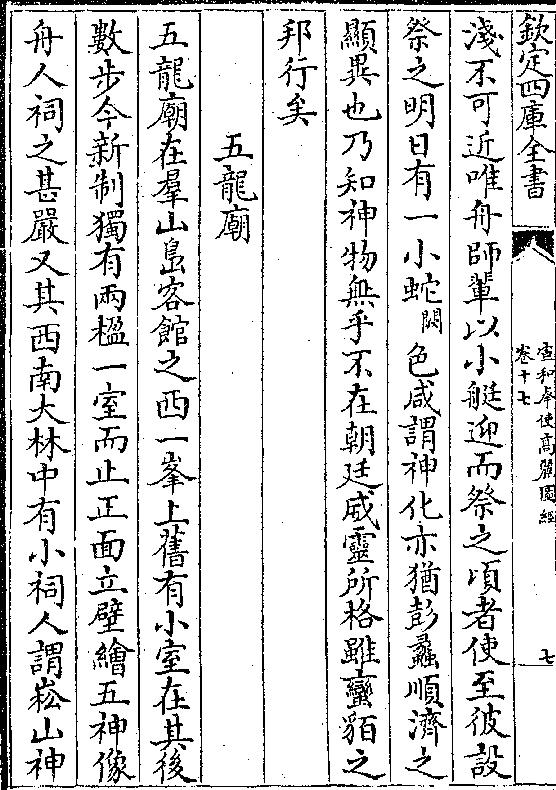 欽定四庫全書
宣和奉使高麗圖經
卷十七
七
淺不可近唯舟師輩以小艇迎而祭之頃者使至彼設
祭之明日有一小蛇闕色咸謂神化亦猶彭蠡順濟之
顯異也乃知神物無乎不在朝廷威靈所格雖蠻貊之
邦行矣
五龍廟
五龍廟在羣山島客館之西一峯上舊有小室在其後
數步今新制獨有兩楹一室而止正面立壁繪五神像
舟人祠之甚嚴又其西南大林中有小祠人謂崧山神